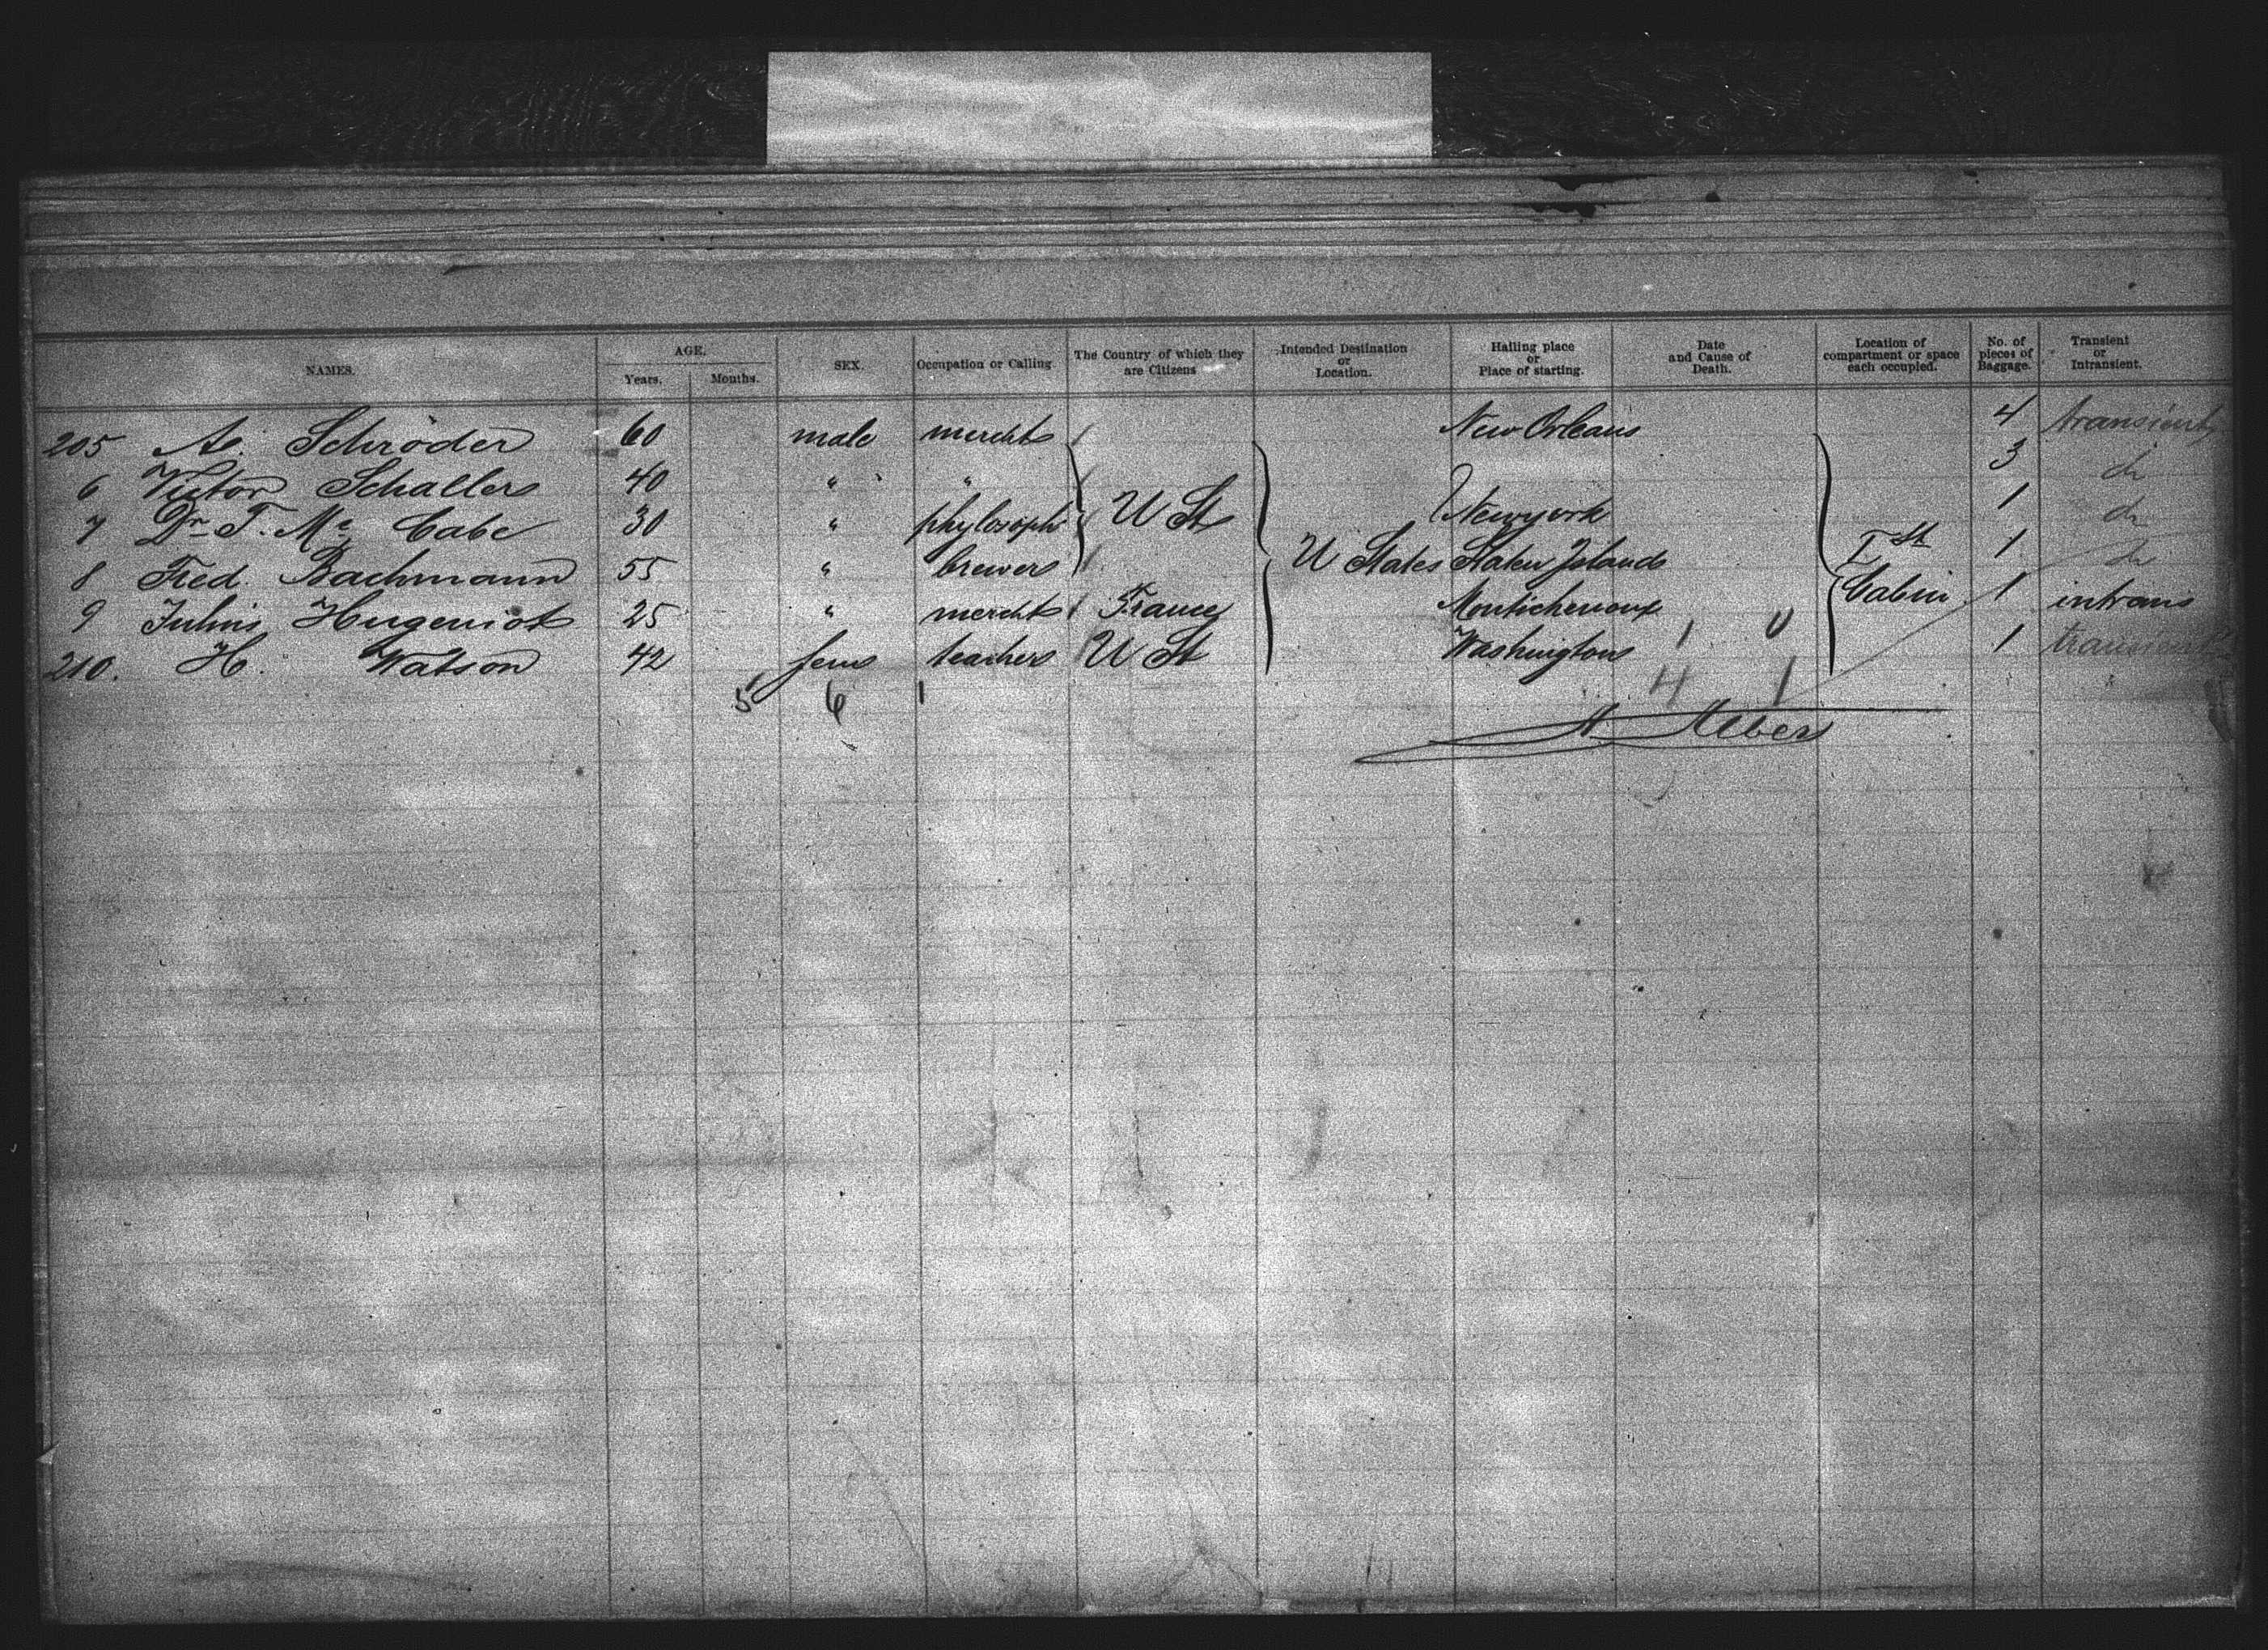 NAMES. AGE. Years. Months. SEX. Occupation or Calling The Country of which they are Citizens Intended Destination or Location. Hailing place or Place of starting. Date and Cause of Death. Location of compartment or space each occupied. No. of pieces of Baggage. Transient or Intransient.
205 A. Schröder 60 male mercht New Orleans 4 transient
6 Victor Schaller 40 " " 3 do
7 Dr. T. Mc Cabe 30 " phylosoph U St Newyork 1 do
8 Fred. Bachmann 55 " brewer U States Staten Island Ist 1 do
9 Julius Hugeniot 25 " mercht France Cabin 1 intrans
210. H. Watson 42 fem teacher U St Washington 1 0 1 transient
5 6 1 4 1
A Albers